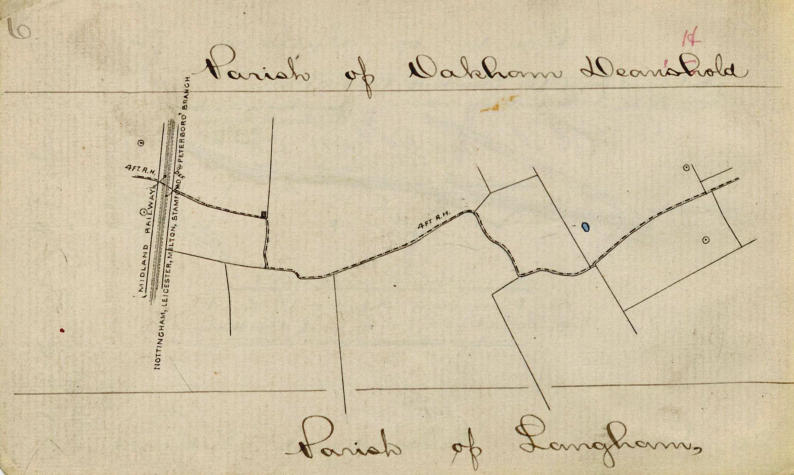 6.
H
Parish of Oakham Deanshold
4 FT R.H.
(MIDLAND RAILWAY)
NOTTINGHAM, LEICESTER, MELTON, STAMFORD, & PETERBORO' BRANCH
4 FT R.H.
Parish of Langham,